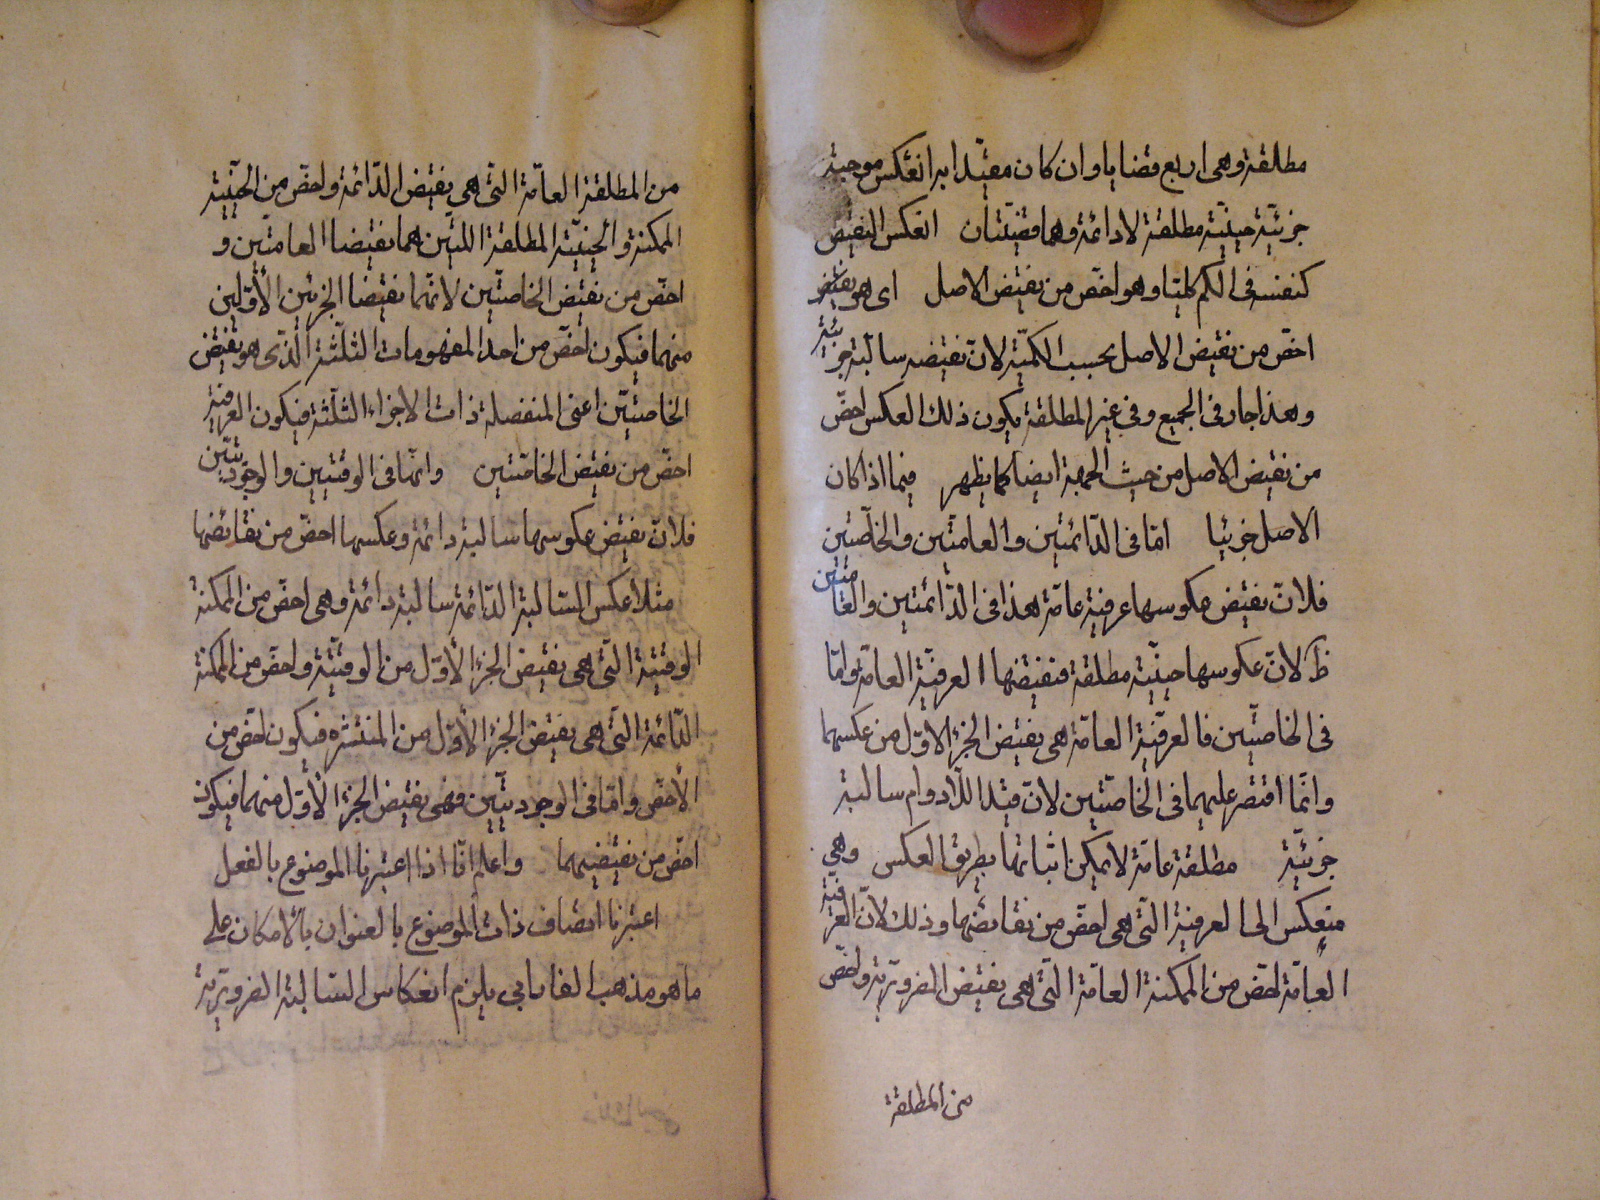 مطلقة وهى اربع قضايا وان كان مقيّدا بها انعكس موجبة
جزئيّة حينيّة مطلقة لادائمة وهما قضيّتان انعكس النقيض
كنفسه فى الكم كليّا وهو اخصّ من نقيض الاصل اى هو نقيض
اخصّ من نقيض الاصل بحسب الكميّة لانّ نقيضه سالبة جزئية
وهذا جار فى الجميع وفى غير المطلقة يكون ذلك العكس اخصّ
من نقيض الاصل من حيث الجهة ايضا كما يظهر فيما اذا كان
الاصل جزئيا امّا فى الدّائمتين والعامّتين والخاصّتين
فلانّ نقيض عكوسها عرفية عامّة هذا فى الدّائمتين والعامّتين
ظ لانّ عكوسها حينيّة مطلقة فنقيضها العرفيّة العامّة وامّا
فى الخاصّتين فالعرفيّة العامّة هى نقيض الجزء الاوّل من عكسهما
وانّما اقتصر عليهما فى الخاصّتين لانّ قيد اللّادوام سالبة
جزئيّة مطلقة عامّة لا يمكن اثباتها بطريق العكس وهى
منعكس الى العرفية الّتى هى اخصّ من نقائضها وذلك لانّ العرفية
العامّة اخصّ من الممكنة العامّة الّتى هى نقيض الضروريّة واخصّ
من المطلقة
من المطلقة العامّة الّتى هى نقيض الدّائمة واخصّ من الحينيّة
الممكنة والحينيّة المطلقة اللتين هما نقيضا العامّتين و
اخصّ من نقيض الخاصّتين لانّهما نقيضا الجزئين الأوّلين
منهما فيكون اخصّ من احد المفهومات الثلثة الّذى هو نقيض
الخاصّتين اعنى المنفصلة ذات الاجزاء الثلثة فيكون العرفية
اخصّ من نقيض الخاصّتين وامّا فى الوقتيين والوجوديّتين
فلانّ نقيض عكوسها سالبة دائمة وعكسها اخصّ من نقائضها
مثلا عكس السّالبة الدّائمة سالبة دائمة وهى اخصّ من الممكنة
الوقتية الّتى هى نقيض الجزء الأوّل من الوقتيّة واخصّ من الممكنة
الدّائمة الّتى هى نقيض الجزء الأوّل من المنتشره فيكون اخصّ من
الأخصّ وامّا فى الوجوديّتين فهى نقيض الجزء الأوّل منهما فيكون
اخصّ من نقيضيهما واعلم انّا اذا اعتبرنا الموضوع بالفعل
اعتبرنا اتصاف ذات الموضوع بالعنوان بالامكان على
ما هو مذهب الفارابى يلزم انعكاس السّالبة الضروريّة